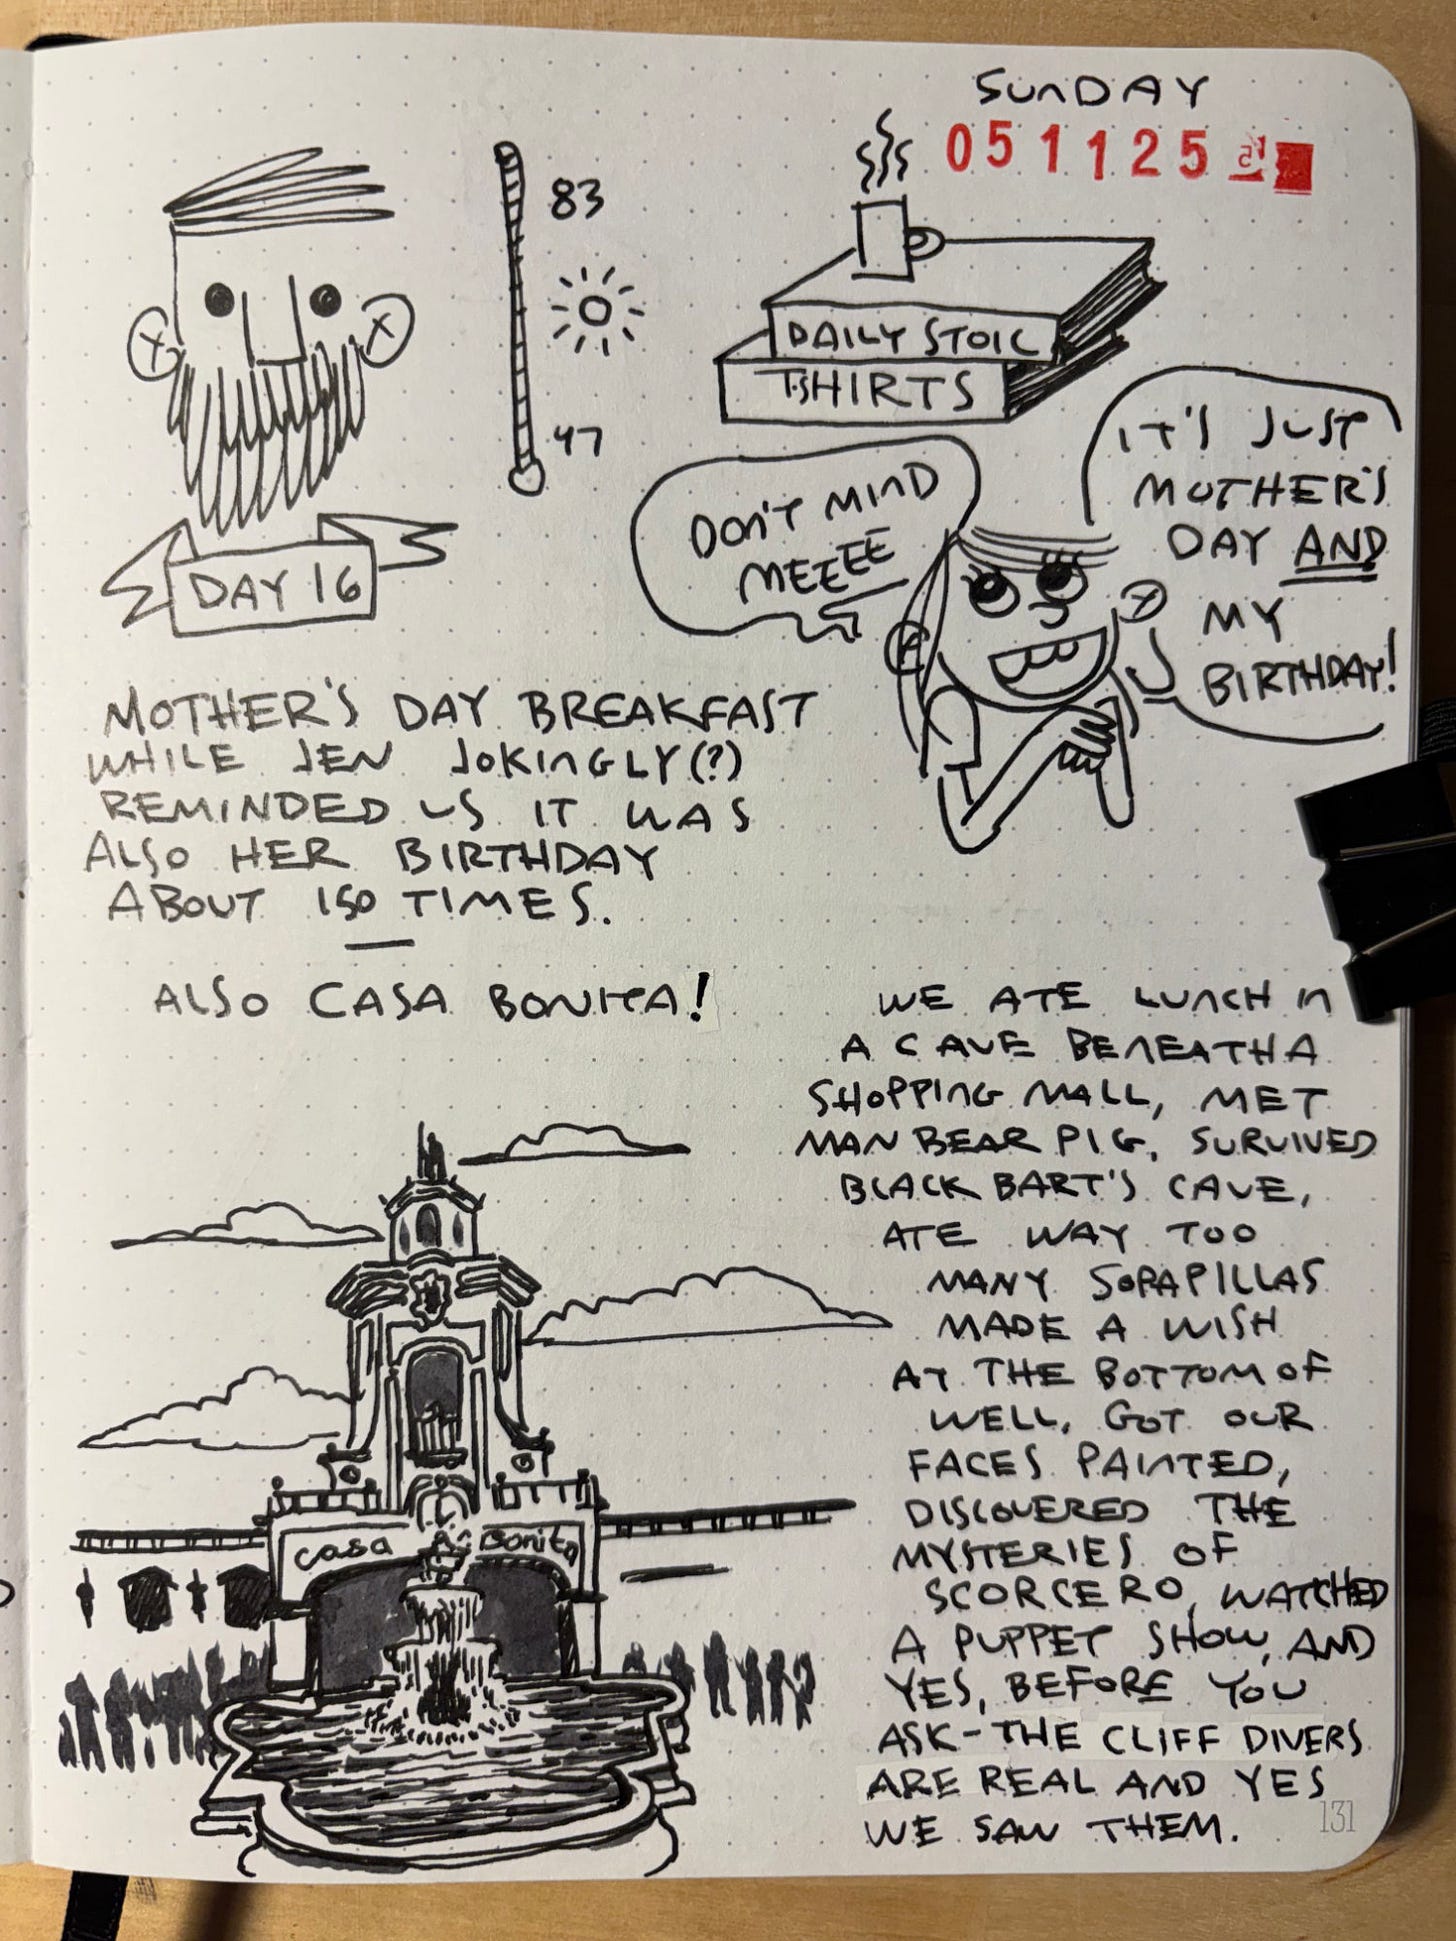 SUNDAY
051125
83
47
DAILY STOIC
T-SHIRTS
DAY 16
DON'T MIND
MEEEEE
IT'S JUST
MOTHER'S
DAY AND
MY
BIRTHDAY!
MOTHER'S DAY BREAKFAST
WHILE JEN JOKINGLY(?)
REMINDED US IT WAS
ALSO HER BIRTHDAY
ABOUT 150 TIMES.
ALSO CASA BONITA!
casa Bonita
WE ATE LUNCH IN
A CAVE BENEATH A
SHOPPING MALL, MET
MAN BEAR PIG, SURVIVED
BLACK BART'S CAVE,
ATE WAY TOO
MANY SOPAPILLAS
MADE A WISH
AT THE BOTTOM OF
WELL, GOT OUR
FACES PAINTED,
DISCOVERED THE
MYSTERIES OF
SCORCERO, WATCHED
A PUPPET SHOW, AND
YES, BEFORE YOU
ASK-THE CLIFF DIVERS
ARE REAL AND YES
WE SAW THEM.
131